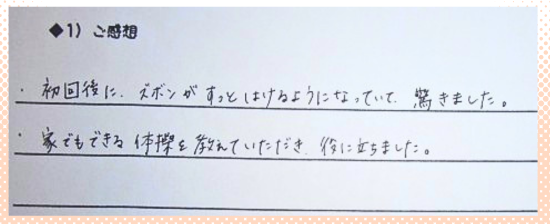 ◆1) ご感想
・初回後に、ズボンがすっとはけるようになっていて、驚きました。
・家でもできる体操を教えていただき、役に立ちました。